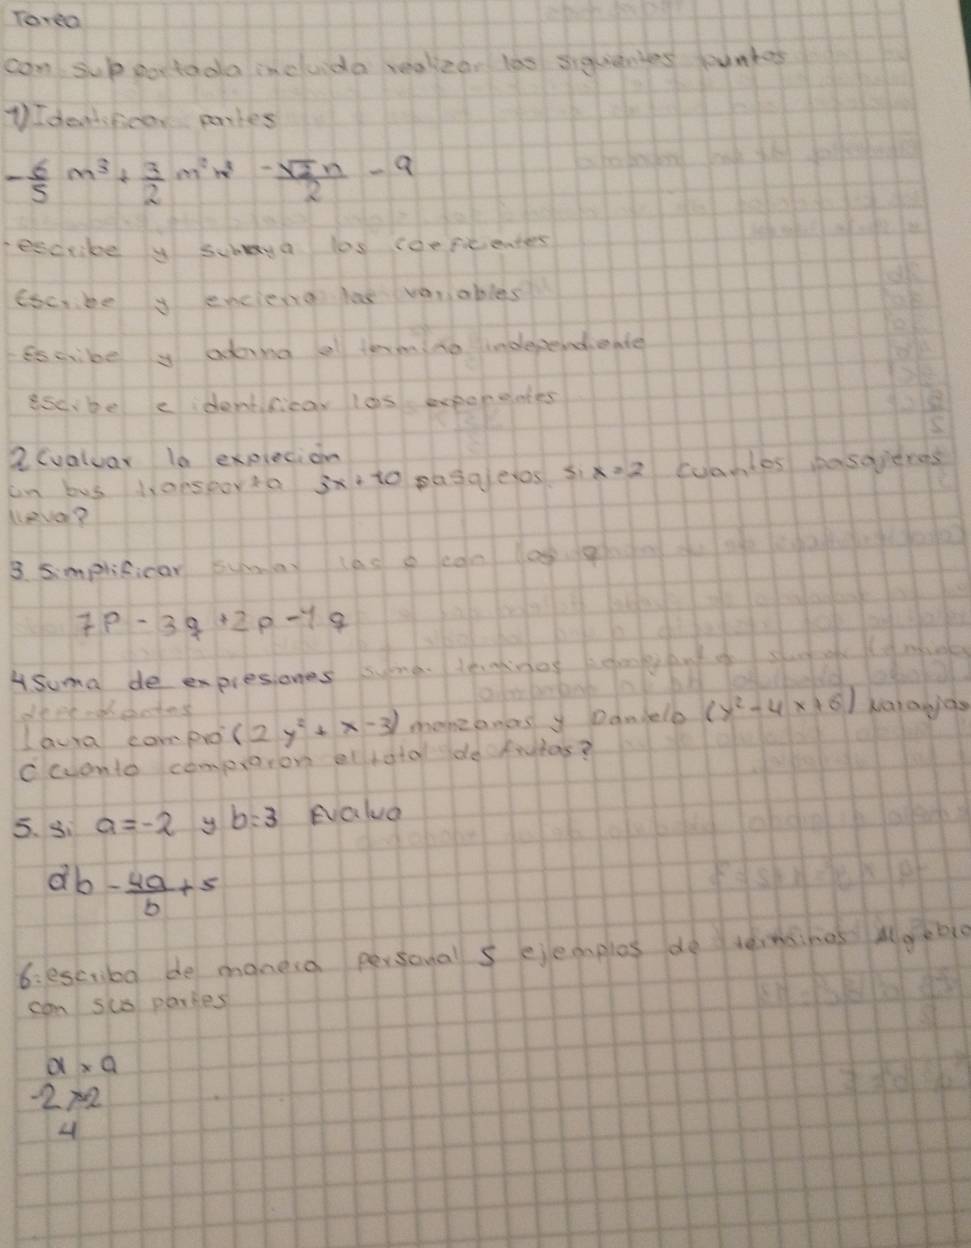 Tarea
con subportada incluida realizar los siguientes puntos
1) Identificar partes
-6/5 m³ + 3/2 m² n³ - √2n/2 - 9
-escribe y subraya los coeficientes
Escribe y encierra las variables
-Escribe y adorna el termino independiente
escribe e identificar los exponentes
2 Evaluar la expreción
un bus transporta 3x+10 pasajeros si x=2 cuantos pasajeros
lleva?
3. Simplificar sumar las p con las q
7p - 3q + 2p - 4q
4 Suma de expresiones suma terminos
Laura compró (2y² + x - 3) manzanas y Daniela (y² - 4x + 6) naranjas
¿cuanto compraron el total de frutas?
5. Si a = -2 y b = 3 Evalua
ab - 4a/b + 5
6. escriba de manera personal 5 ejemplos de terminos Algebra
con sus partes
a x a
-2 x -2
4